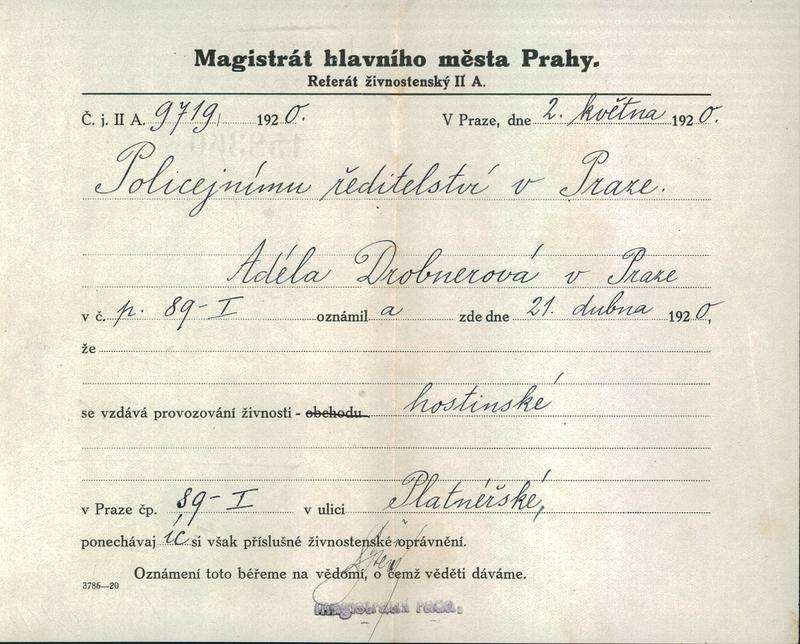 Magistrát hlavního města Prahy.
Referát živnostenský II A.
Č. j. II A. 9719, 1920. V Praze, dne 2. května 1920.
Policejnímu ředitelství v Praze.
Adéla Drobnerová v Praze
v č. p. 89-I oznámil a zde dne 21. dubna 1920,
že
se vzdává provozování živnosti - obchodu hostinské
v Praze čp. 89-I v ulici Platnéřské,
ponechávaj íc si však příslušné živnostenské oprávnění.
Oznámení toto béřeme na vědomí, o čemž věděti dáváme.
3786—20
magistrátní rada.